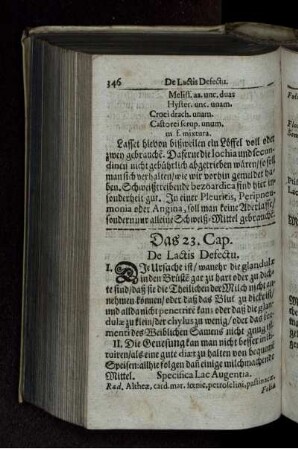 346 De Lactis Defectu.
Meliss. aa. unc. duas
Hyster. unc. unam.
Croci drach. unam.
Castorei scrup. unum.
m. f. mixtura.
Lasset hievon bißweilen ein Löffel voll oder
zwey gebrauchē. Daferne die lochia und secun-
dinen nicht gebührlich abgetrieben würen/ so soll
man sich verhalten/ wie wir vorhin gemeldet ha-
ben, Schweißtreibende bezoardica sind hier in-
sonderheit gut. In einer Pleuritis, Peripneu-
monia oder Angina, soll man keine Aderlässe/
sondern nur alleine Schweiß-Mittel gebrauchē.
Das 23. Cap.
De Lactis Defectu.
I. Die Ursache ist/ wann die glandulæ
in den Brüste gar zu hart oder zu dich-
te sind/ daß sie die Theilichen der Milch nicht an-
nehmen können/ oder daß das Blut zu dicke ist/
und allda nicht penetrire kan/ oder daß die glan-
dulæ zu klein/ der chylus zu wenig/ oder das fer-
menti des Weiblichen Samens nicht gnug ist.
II. Die Genesung kan man nicht besser insti-
tuiren/ als eine gute diæt zu halten von bequemē
Speisen/ allhie folgen daß einige milchmachende
Mittel. Specifica Lac Augentia.
Rad. Altheæ, card. mar. fœnic, petroselini, pastinacæ,